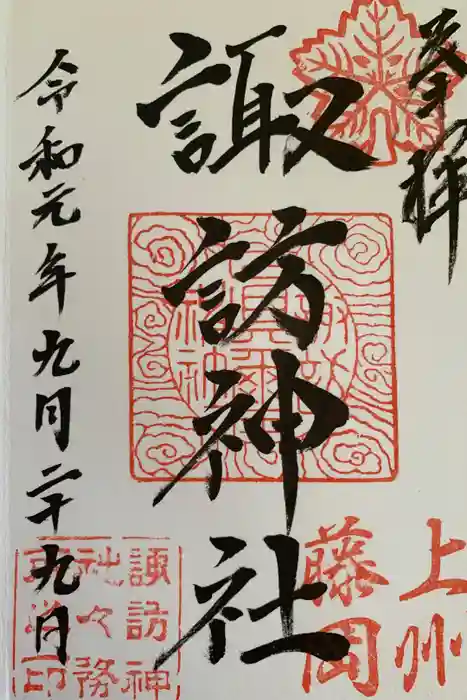 奉拝
上州
藤岡
諏訪神社
諏訪神
社々務
令和元年九月二十九日